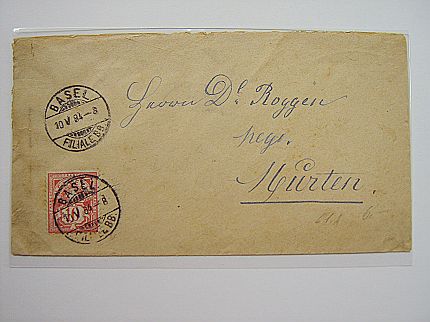 BASEL
10 V 84-8
FILIALE BB.
Herrn Dr Roggen
Murten.
BASEL
10 V 84-8
FILIALE BB.
10